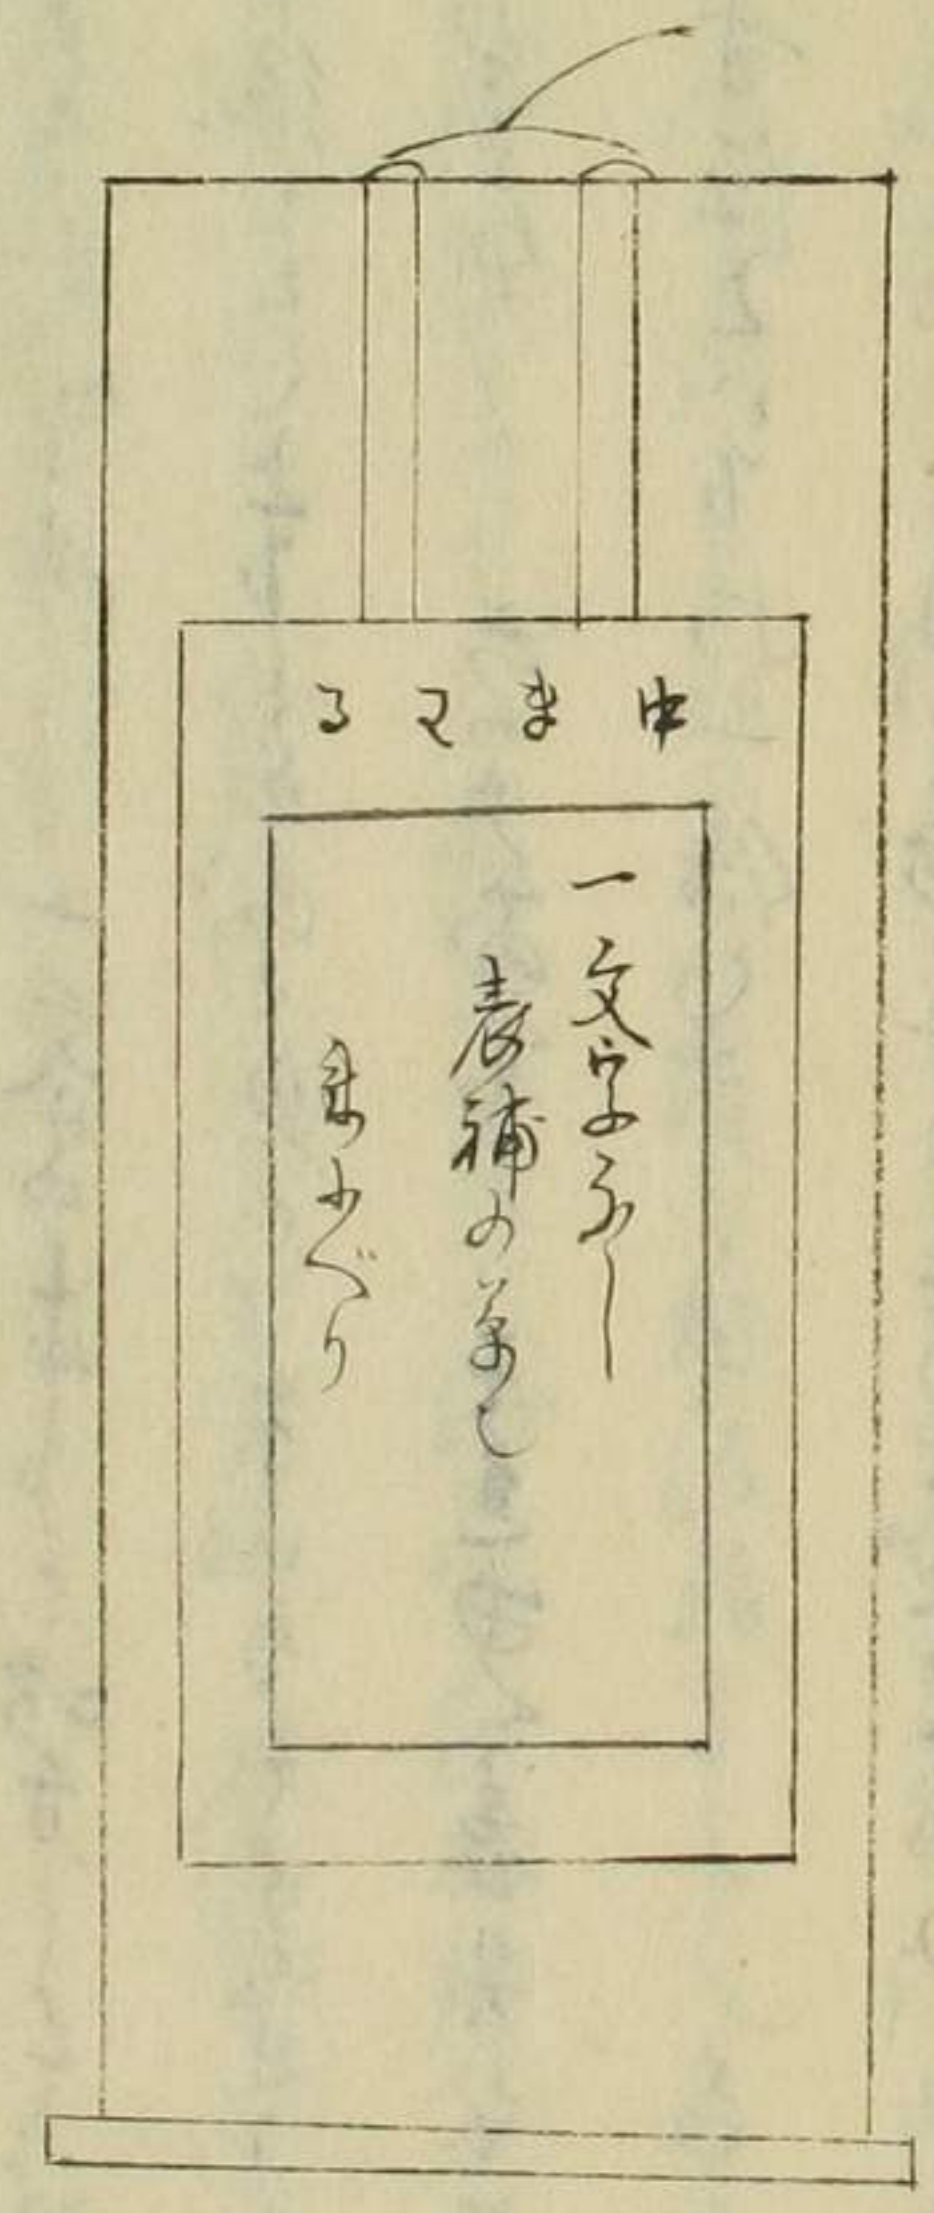 中まわる
一文字なし
表補の草也
小べり